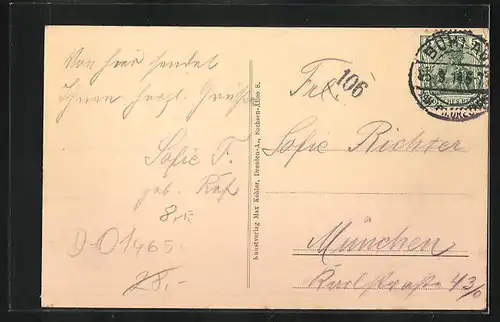 Von hier sendet
Ihnen herzl. Grüße
Sofie F.
geb. Räf
D-01465
28.-
Kunstverlag Max Köhler, Dresden-A., Sachsen-Allee 8.
Frl.
106
Sofie Richter
München
Karlstraße 43/0